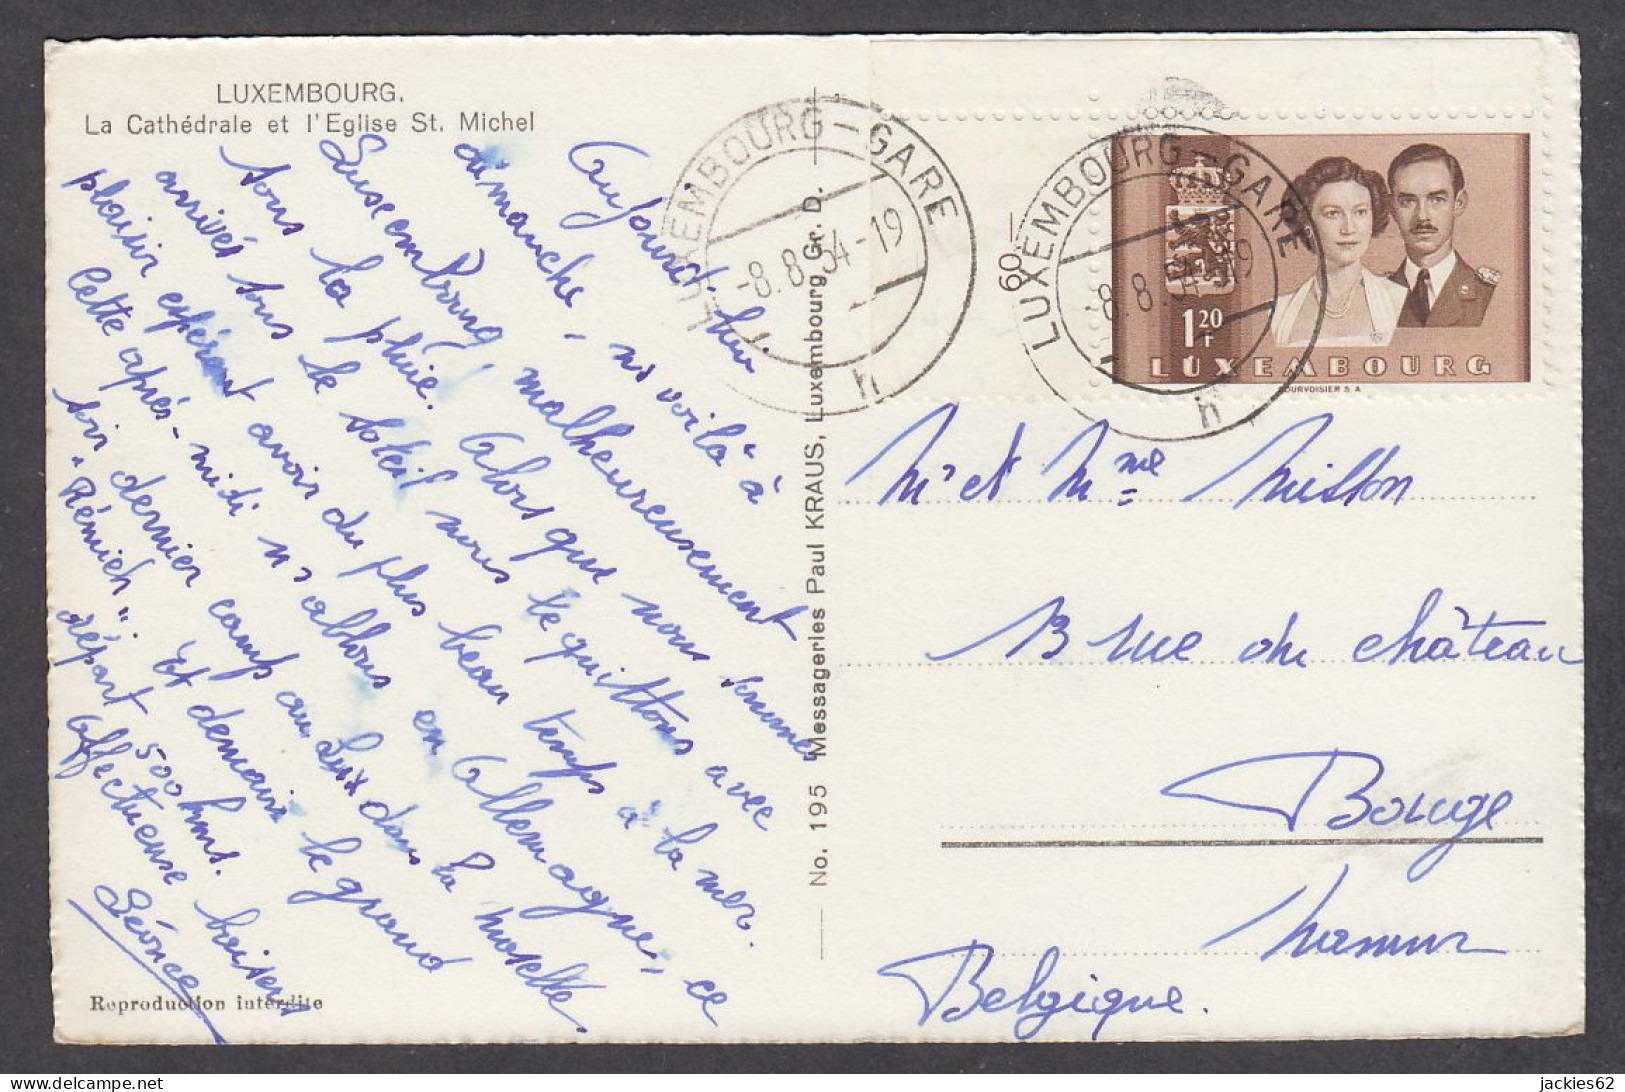 LUXEMBOURG.
La Cathédrale et l'Eglise St. Michel
Aujourd'hui
dimanche, ns voilà à
Luxembourg, malheureusement
sous la pluie. Alors que nous sommes
arrivés sous le soleil nous le quittons avec
plaisir espérant avoir du plus beau temps à la mer.
Cette après-midi ns allons en Allemagne, ce
soir dernier camp au Lux dans la moselle
"Rémich". Et demain le grand
départ 500 kms.
Affectueuse baisers
No. 195 Messageries Paul KRAUS, Luxembourg Gr. D.
Reproduction interdite
LUXEMBOURG-GARE
-8.8.54-19
h
LUXEMBOURG-GARE
-8.8.54-19
h
60
1 20 F
LUXEMBOURG
COURVOISIER S.A.
Mr et Mme Misson
13 rue du château
Bouge
Namur
Belgique.
jackies62